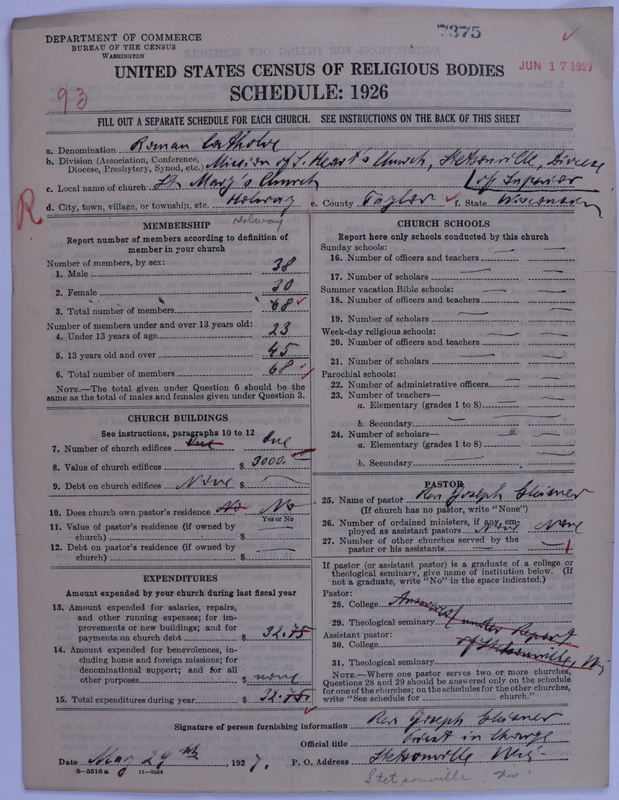 DEPARTMENT OF COMMERCE
BUREAU OF THE CENSUS
WASHINGTON
7375
JUN 17 1927
UNITED STATES CENSUS OF RELIGIOUS BODIES
SCHEDULE: 1926
93
FILL OUT A SEPARATE SCHEDULE FOR EACH CHURCH. SEE INSTRUCTIONS ON THE BACK OF THIS SHEET
a. Denomination Roman Catholic
b. Division (Association, Conference, Diocese, Presbytery, Synod, etc.) Mission of S. Heart's Church, Stetsonville, Diocese
of Superior
c. Local name of church St. Mary's Church
d. City, town, village, or township, etc. Holway e. County Taylor f. State Wisconsin
R
Holway
MEMBERSHIP
Report number of members according to definition of
member in your church
Number of members, by sex:
1. Male 38
2. Female 30
3. Total number of members 68
Number of members under and over 13 years old:
4. Under 13 years of age 23
5. 13 years old and over 45
6. Total number of members 68
NOTE.—The total given under Question 6 should be the
same as the total of males and females given under Question 3.
CHURCH BUILDINGS
See instructions, paragraphs 10 to 12
7. Number of church edifices One One
8. Value of church edifices $ 3000.
9. Debt on church edifices None $
10. Does church own pastor's residence No No
Yes or No
11. Value of pastor's residence (if owned by
church) $
12. Debt on pastor's residence (if owned by
church) $
EXPENDITURES
Amount expended by your church during last fiscal year
13. Amount expended for salaries, repairs,
and other running expenses; for im-
provements or new buildings; and for
payments on church debt $ 32.75
14. Amount expended for benevolences, in-
cluding home and foreign missions; for
denominational support; and for all
other purposes $ none
15. Total expenditures during year $ 32.75
CHURCH SCHOOLS
Report here only schools conducted by this church
Sunday schools:
16. Number of officers and teachers
17. Number of scholars
Summer vacation Bible schools:
18. Number of officers and teachers
19. Number of scholars
Week-day religious schools:
20. Number of officers and teachers
21. Number of scholars
Parochial schools:
22. Number of administrative officers
23. Number of teachers—
a. Elementary (grades 1 to 8)
b. Secondary
24. Number of scholars—
a. Elementary (grades 1 to 8)
b. Secondary
PASTOR
25. Name of pastor Rev Joseph
(If church has no pastor, write "None")
26. Number of ordained ministers, if any, em-
ployed as assistant pastors None None
27. Number of other churches served by the
pastor or his assistants 1
If pastor (or assistant pastor) is a graduate of a college or
theological seminary, give name of institution below. (If
not a graduate, write "No" in the space indicated.)
Pastor:
28. College Answered under Report
29. Theological seminary of Stetsonville, Wis
Assistant pastor:
30. College
31. Theological seminary
NOTE.—Where one pastor serves two or more churches,
Questions 28 and 29 should be answered only on the schedule
for one of the churches; on the schedules for the other churches,
write "See schedule for church."
Signature of person furnishing information Rev Joseph
Official title Priest in Charge
Date May 29 th, 1927. P. O. Address Stetsonville Wis.
8—5518a 11—9564
Stetsonville, Wis